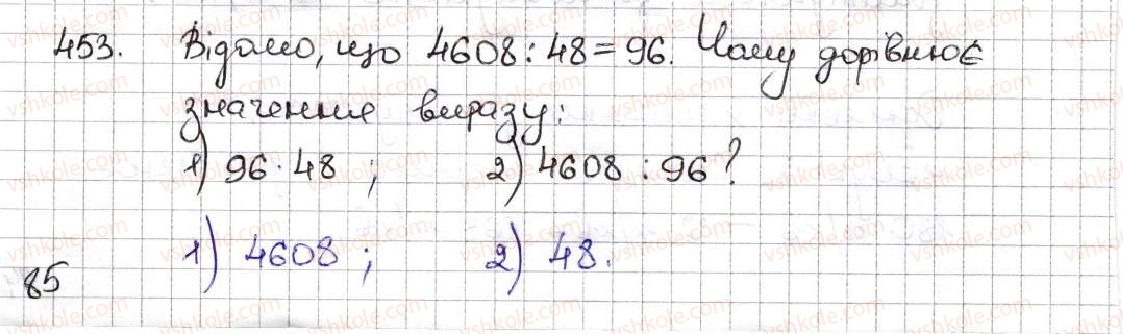 453. Відомо, що 4608 : 48 = 96. Чому дорівнює
значення виразу:
1) 96 · 48 ; 2) 4608 : 96 ?
1) 4608 ; 2) 48.
85
vshkole.com